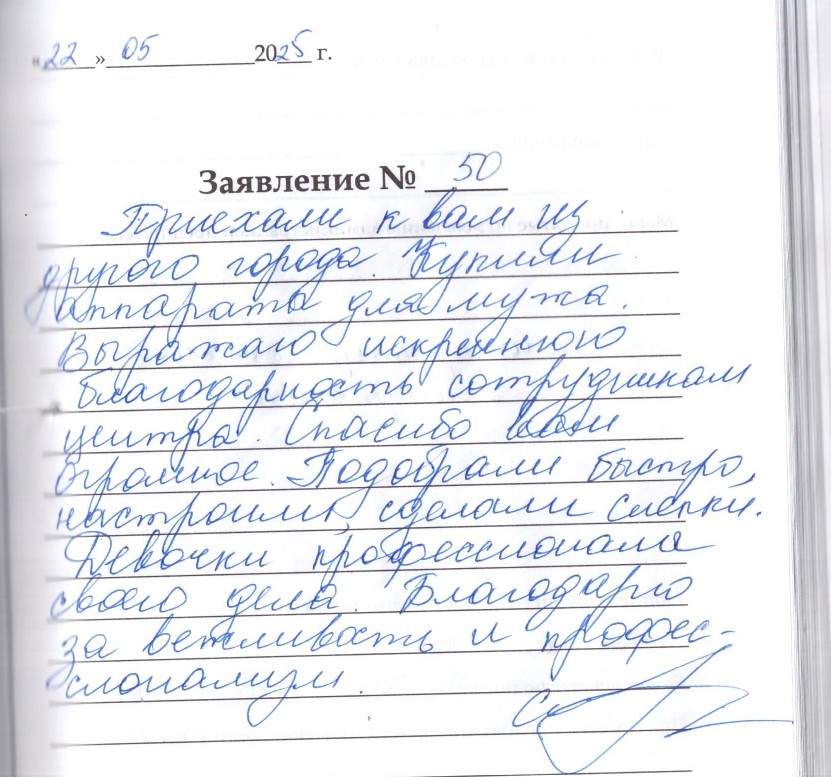 «22» 05 2025 г.
Заявление № 50
Приехали к вам из
другого города. Купили
аппараты для мужа.
Выражаю искреннюю
благодарность сотрудникам
центра. Спасибо вам
огромное. Подобрали быстро,
настроили, сделали слепки.
Девочки профессионалы
своего дела. Благодарю
за вежливость и профес-
сионализм.